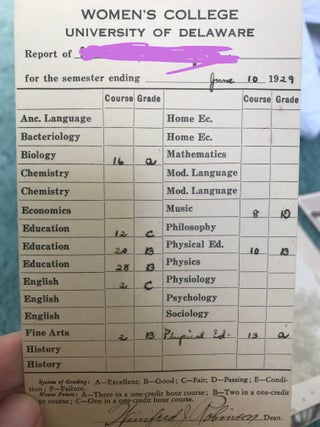 WOMEN'S COLLEGE
UNIVERSITY OF DELAWARE
Report of
for the semester ending June 10 1929
Course Grade Course Grade
Anc. Language Home Ec.
Bacteriology Home Ec.
Biology 16 a Mathematics
Chemistry Mod. Language
Chemistry Mod. Language
Economics Music 8 D
Education 12 C Philosophy
Education 20 B Physical Ed. 10 B
Education 28 B Physics
English 2 C Physiology
English Psychology
English Sociology
Fine Arts 2 B Physical Ed. 13 a
History
History
System of Grading: A—Excellent; B—Good; C—Fair; D—Passing; E—Condi-
tion; F—Failure.
Honor Points: A—Three in a one-credit hour course; B—Two in a one-credit
hour course; C—One in a one-credit hour course.
Winifred J. Robinson Dean.